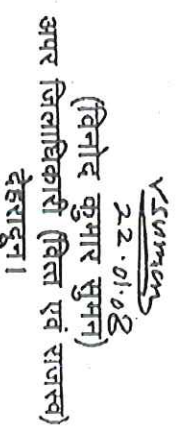 VSuman
22.01.08
(विनोद कुमार सुमन)
अपर जिलाधिकारी (वित्त एवं राजस्व)
देहरादून।